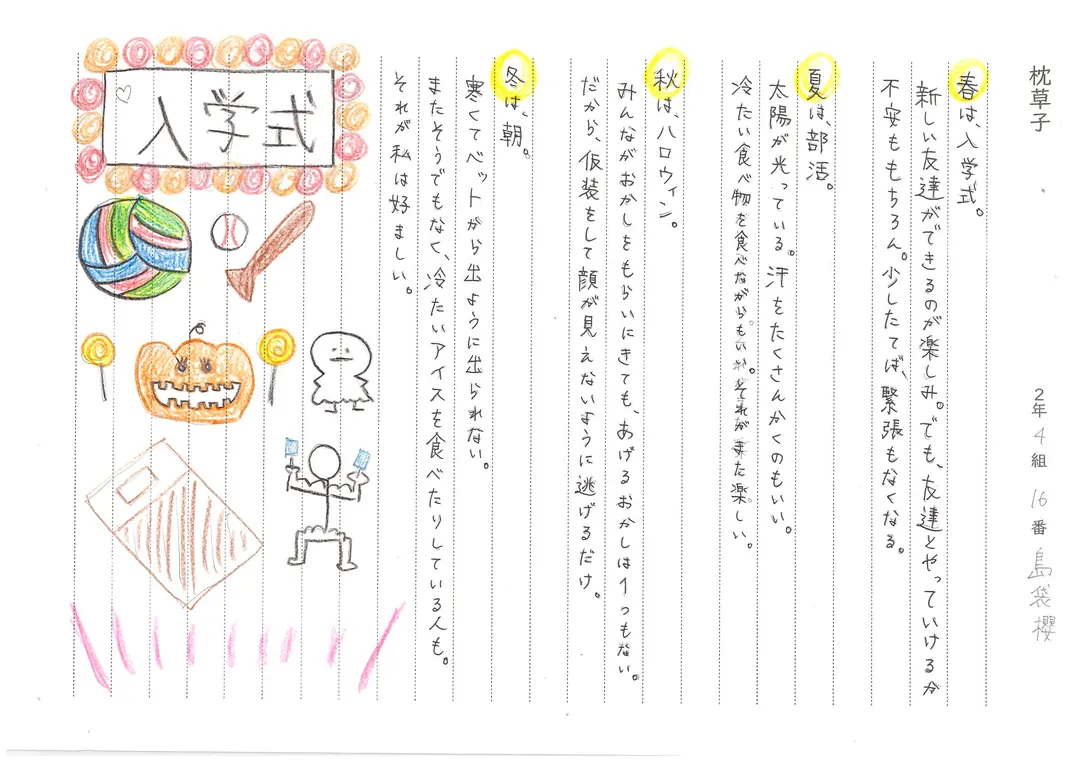 枕草子
2年4組 16番 島袋櫻
春は、入学式。
新しい友達ができるのが楽しみ。でも、友達とやっていけるか
不安ももちろん。少したてば、緊張もなくなる。
夏は、部活。
太陽が光っている。汗をたくさんかくのもいい。
冷たい食べ物を食べながらもいい。それがまた楽しい。
秋は、ハロウィン。
みんながおかしをもらいにきても、あげるおかしは1つもない。
だから、仮装をして顔が見えないように逃げるだけ。
冬は、朝。
寒くてベットから出ように出られない。
またそうでもなく、冷たいアイスを食べたりしている人も。
それが私は好ましい。
入学式